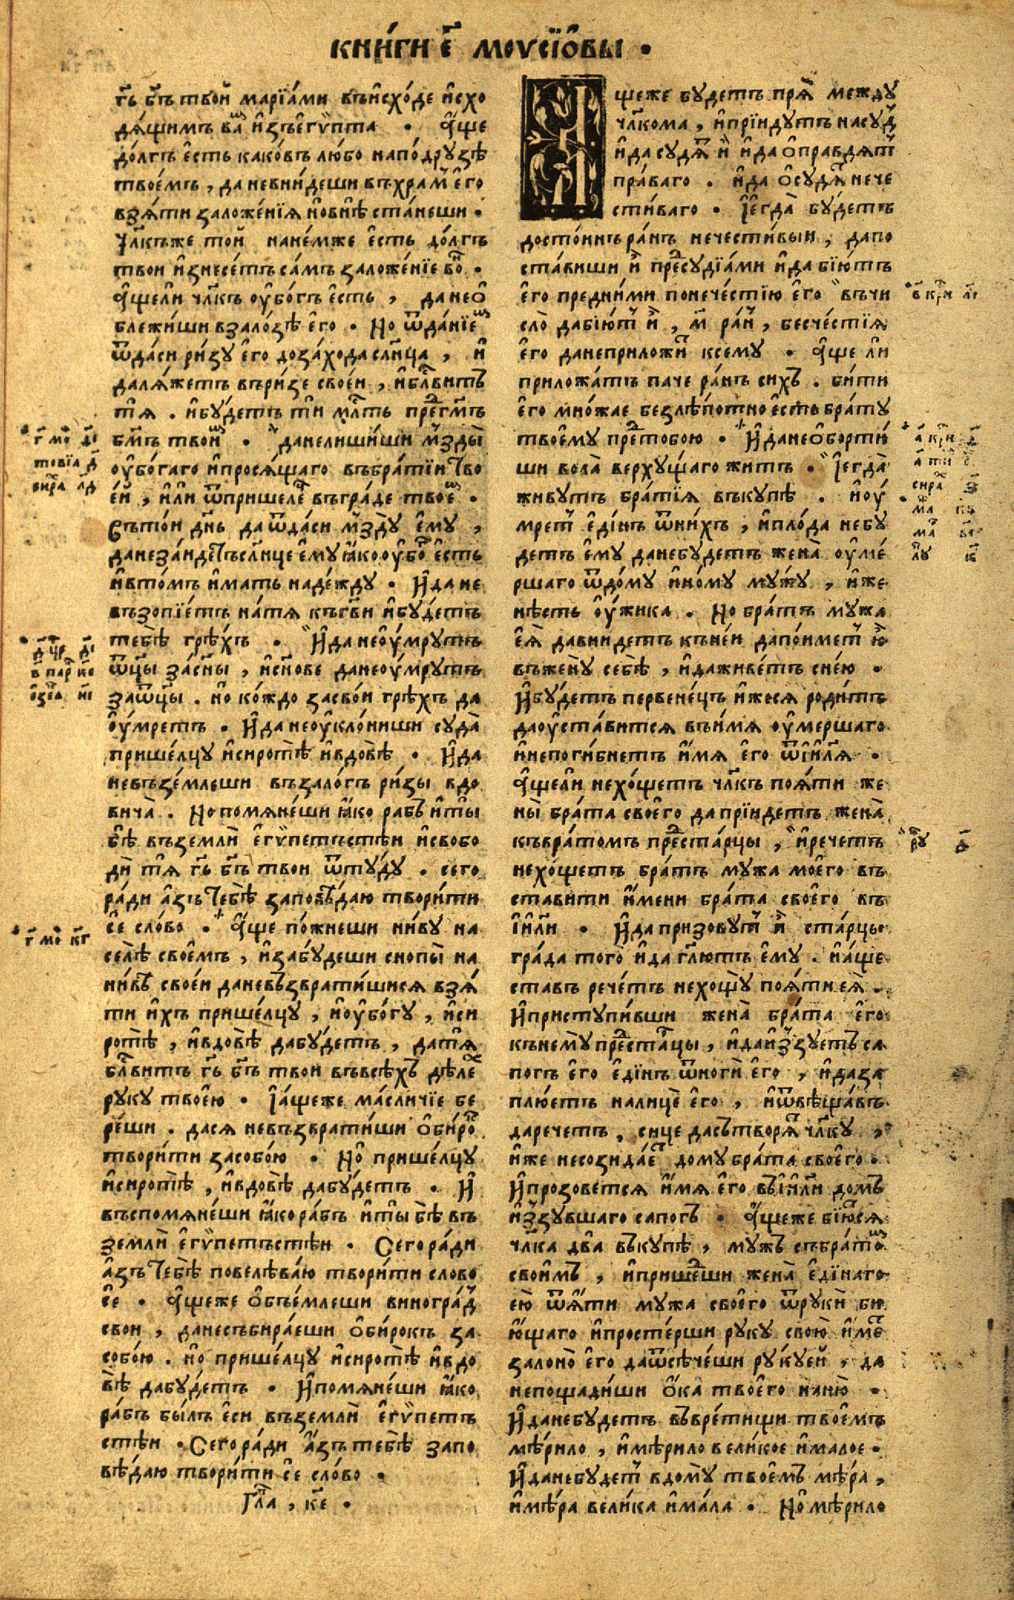 книги є҃ моусїѡвы ·
гь҃ бг҃ъ твой марїами въисходе исхо
дящимъ ваⷨ изъегѵпта · Аще
долгъ єсть каковъ любо наподрузѣ
твоємъ , да невнидеши въхраⷨ єго
взяти заложенїя новнѣ станеши ·
Чл҃къже той нанемже єсть долгъ
твои изнесетъ самъ заложенїе
Ащели чл҃къ оубогъ єсть , данео
блежиши взалозѣ єго · Но ѿданїеⷨ
ѿдаси ризу єго дозахода слн҃ца , и
даляжетъ вризе своеи , ибл҃витъ
тя · ибудетъ ти млⷭ҇ть преⷣгмⷭ҇ъ
бг҃мъ твоиⷨ · данелишиши мъзды
оубогаго ипросящаго въбратїи тво
ей , или ѿпришелеⷰ҇ въграде твоеⷨ ·
Вътои днь҃ да ѿдаси мъзду єму ,
данезаидетъслн҃це єму яко оубоⷢ҇ єсть
ивтомъ имать надежду · Ида не
възопїетъ натя къгв҃и ибудетъ
тебѣ грѣхъ · Ида неоумрутъ
ѿцы засны , иснове данеоумрутъ
заѿцы · но кождо засвои грѣхъ да
оумретъ · Ида неоуклониши суда
пришелцу исиротѣ ивдовѣ · Ида
невъземлеши възалогъ ризы вдо
вича · Но помянеши яко рабъ иты
бѣ въземли егѵпетъстеи исвобо
ди тя гь҃ бг҃ъ твои ѿтуду · сего
ради азъ тебѣ заповѣдаю творити
се слово · Аще пожнеши ниву на
селѣ своемъ , изабудеши снопы на
нивѣ своеи даневъзвратишися взя
ти ихъ пришелцу , иоубогу , иси
ротѣ , ивдовѣ дабудетъ , датя
бл҃витъ гь҃ бг҃ъ твои въвсѣхъ дѣлеⷯ
руку твоею · Іащеже масличїе бе
реши · дася невъзвратиши обироⷦ
творити засобою · Но пришелцу
исиротѣ , ивдовѣ дабудетъ · И
въспомянеши яко рабъ иты бѣ въ
земли егѵпетъстѣи · Сего ради
азъ тебѣ повелѣваю творити слово
се · Ащеже объемлеши виноградъ
свои , данесъбираеши обирокъ за
собою · но пришелцу исиротѣ ивдо
вѣ дабудетъ · Ипомянеши яко
рабъ былъ еси въземли егѵпетъ
стѣи · Сего ради азъ тебѣ запо
вѣдаю творити се слово ·
Глава , к҃е ·
Ащеже будетъ пря между
чл҃кома , иприидутъ насудⷣ
ида судяⷮ и ида оправдятⷮ
праваго · ида осудяⷮ нече
стиваго · Іегда будетъ
достоинъ ранъ нечестивыи , дапо
ставиши и преⷣсудїами ида бїютъ
єго предними понечестїю єго въчи
сло дабїютⷮ и , м҃ ранⷩ , бесчестїя
єго данеприложиⷮ ксему · Аще ли
приложатъ паче ранъ сихъ · бити
єго множае безлѣпотно естъ брату
твоєму преⷣтобою · И данеоброти
ши вола верхущаго житъ · Іегда
живутъ братїя въкупѣ · иоу
мретⷮ единъ ѿнихъ , иплода небу
детъ єму данебудетъ жена оуме
ршаго ѿдому иному мужу , иже
нѣсть оужика · Но братъ мужа
ея давнидетъ кънеи дапоиметⷮ ю
въжену себѣ , идаживетъ снею ·
Ибудетъ первенецъ ижеся родитъ
даоуставится въимя оумершаго
инепогибнетъ имя єго ѿіи҃ля ·
Ащели нехощетъ чл҃къ пояти же
ны брата своєго да прїидетъ жена
къвратомъ преⷣстарцы , иречетъ
нехощетъ братъ мужа моего въ
ставити имени брата своєго въ
іи҃ли · Ида призовутⷮ и старцы
града того ида гл҃ютъ єму · иаще
ставъ речетъ нехощу пояти ея ·
Иприступивши жена брата єго
кънему преⷣстарцы , идаизъзуетъ са
погъ єго единъ ѿноги єго , идаза
плюетъ налице єго , иѿвѣщавъ
даречетъ , сице дасътворяⷮ чл҃ку ,
иже несозидаеⷮ дому брата своего ·
Ипрозовется имя єго въіи҃ли домъ
изъзувшаго сапогъ · Ащеже бїюⷮся
чл҃ка два вкупѣ , мужъ събратоⷨ
своимъ , ипришеⷣши жена единаго
ею ѿяти мужа своего ѿруки бию
ющаго ипростерши руку свою имеⷮ
залоно єго даѿсѣчеши рукуей , да
непощадиши ока твоего наню ·
Иданебудетъ въвретищи твоемъ
мѣрило , имѣрило великое ималое ·
Иданебудетⷮ вдому твоемъ мѣра ,
имѣра велика имала · Но мѣрило